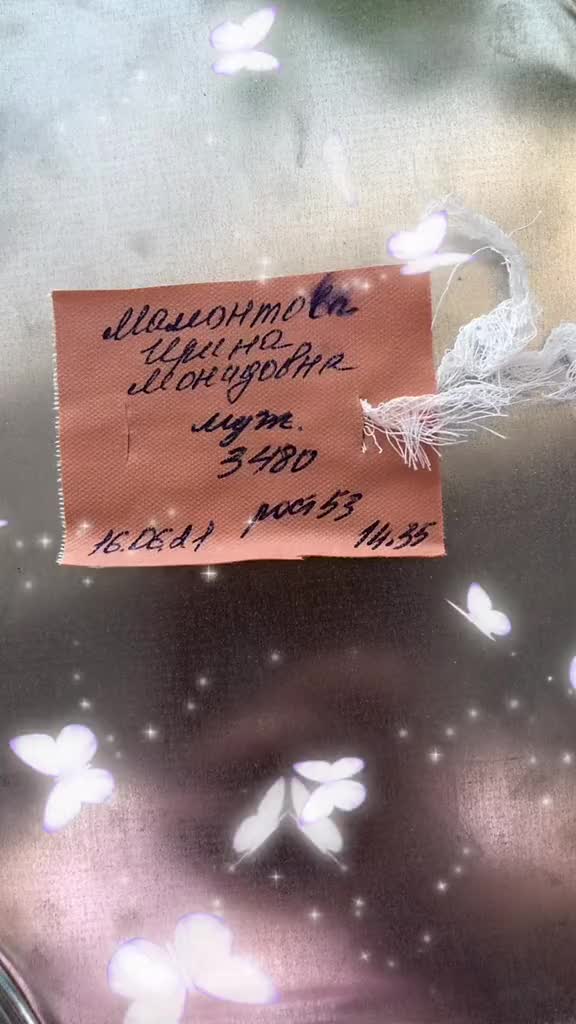 Мамонтова
Ирина
муж.
3480
рост 53
16.06.21 14.35